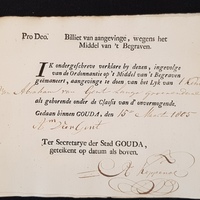 Pro Deo. Billiet van aangevinge, wegens het
Middel van 't Begraven.
IK ondergeschreve verklare by desen, ingevolge
van de Ordonnantie op 't Middel van 't Begraven
geëmaneert, aangevinge te doen van het Lyk van 't Kind
van Abraham van Gent
als gehorende onder de Classis van d'onvermogende.
Gedaan binnen GOUDA, den 15 Maart 1805
Ter Secretarye der Stad GOUDA,
geteikent op datum als boven.